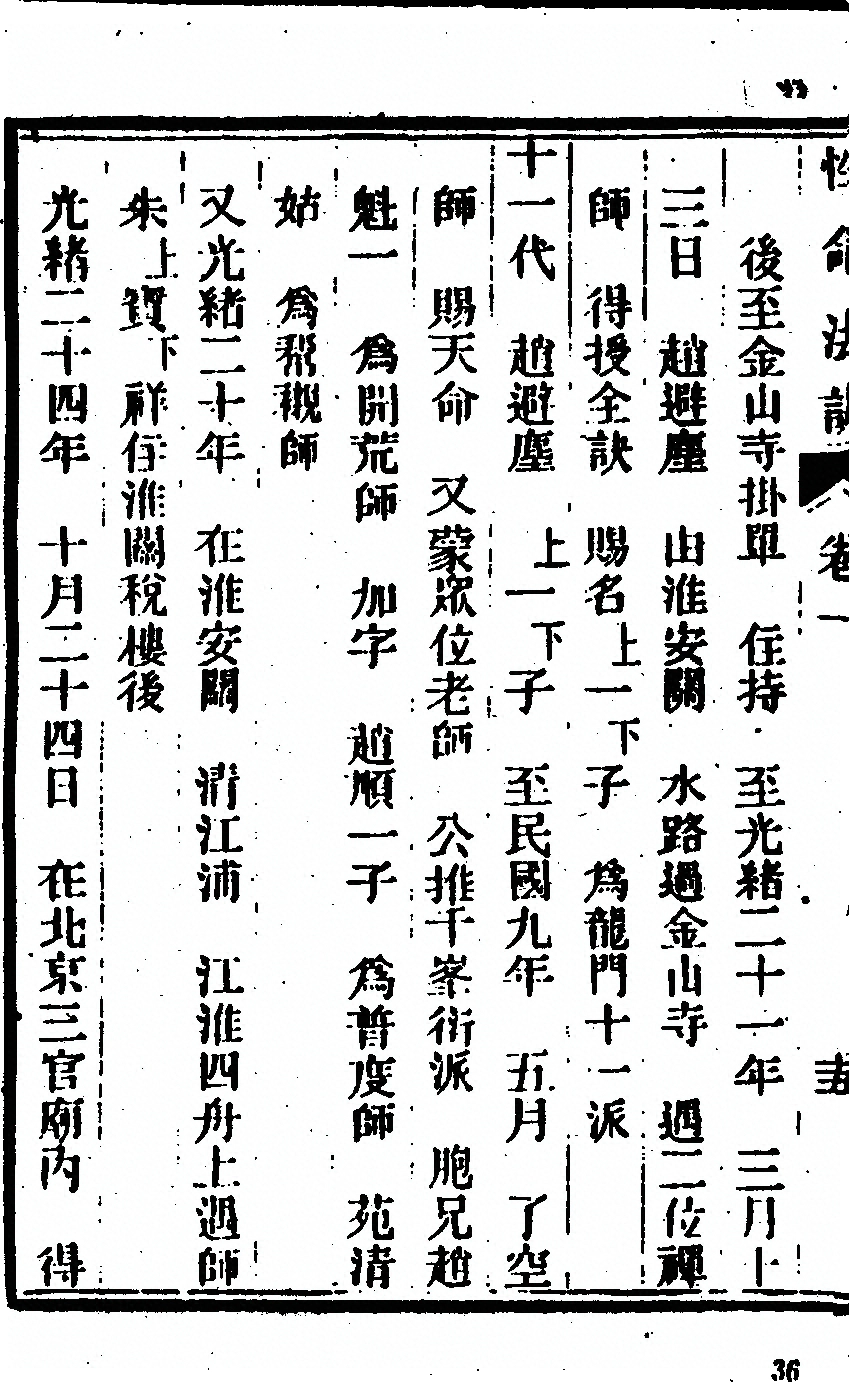 性命法訣 卷一
後至金山寺掛單 住持 至光緒二十一年 三月十
三日 趙避塵 由淮安關 水路過金山寺 遇二位禪
師 得授全訣 賜名上一下子 為龍門十一派
十一代 趙避塵 上一下子 至民國九年 五月 了空
師 賜天命 又蒙眾位老師 公推千峯衍派 胞兄趙
魁一 為開荒師 加字 趙順一子 為普度師 苑清
姑 為引襯師
又光緒二十年 在淮安關 清江浦 江淮四舟上遇師
朱上寶下祥住淮關稅樓後
光緒二十四年 十月二十四日 在北京三官廟內 得
36